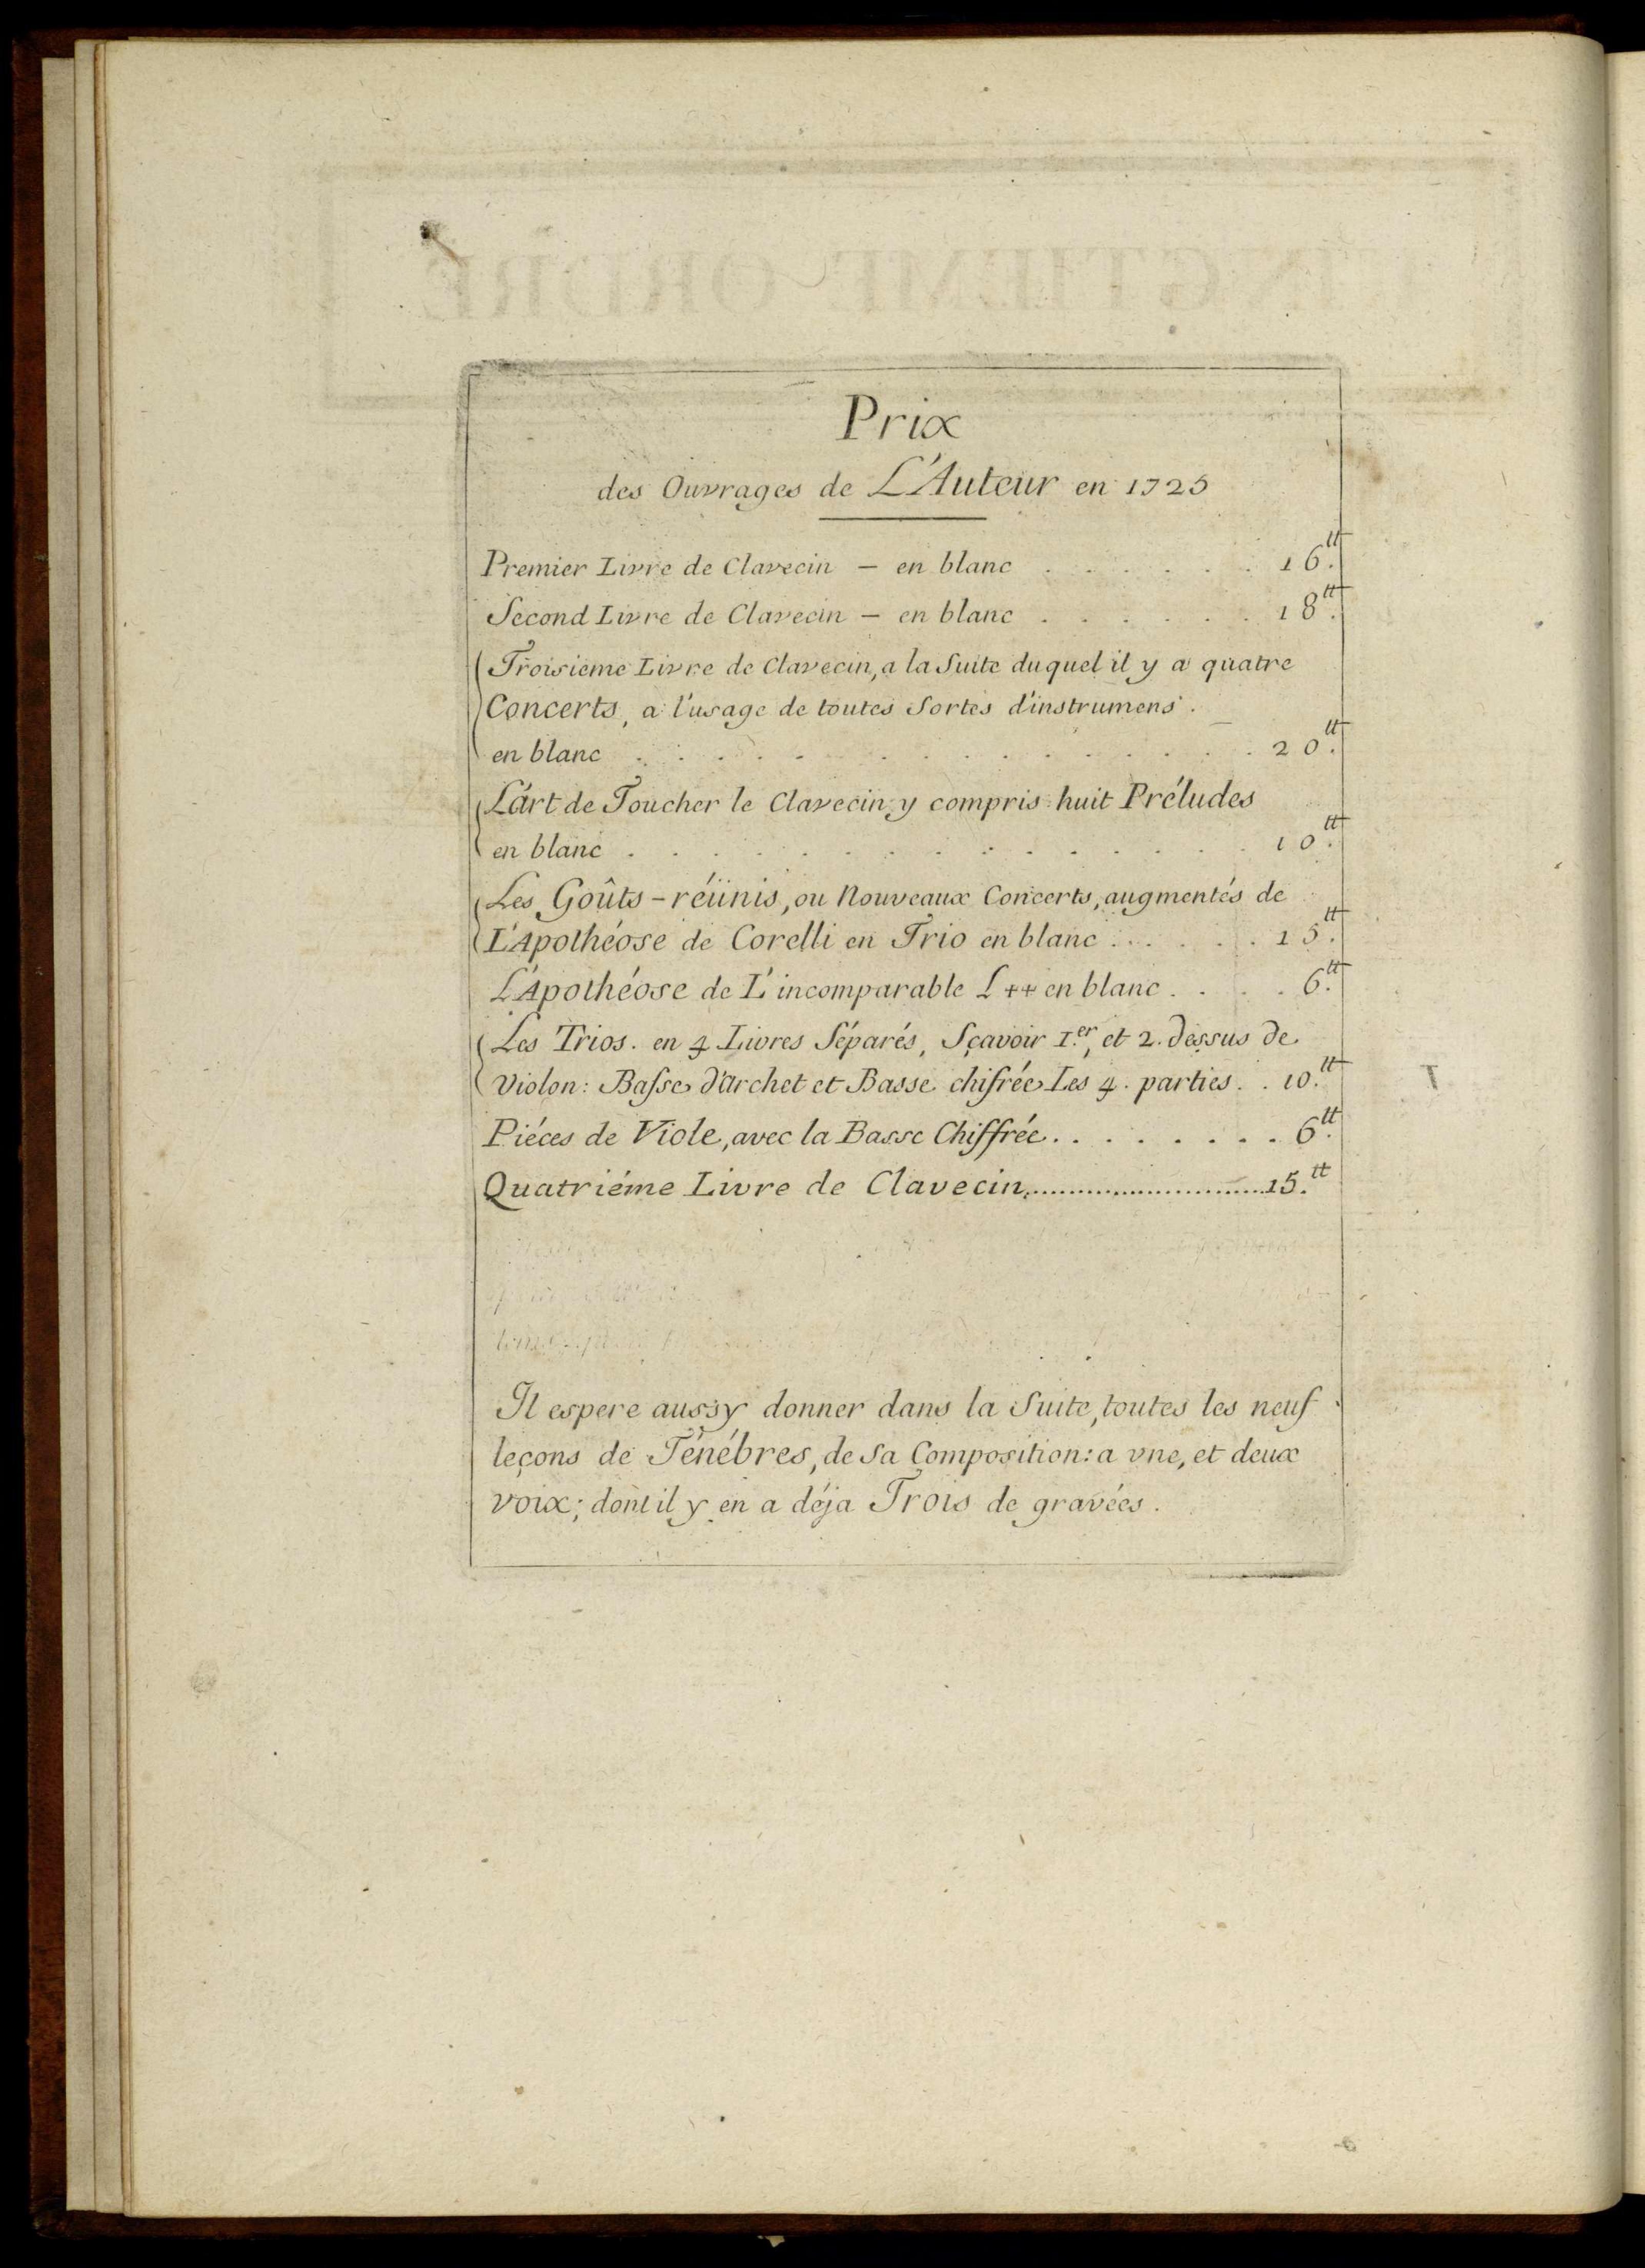 Prix
des Ouvrages de L'Auteur en 1725
Premier Livre de Clavecin – en blanc . . . . . . 16.tt
Second Livre de Clavecin – en blanc . . . . . . 18.tt
Troisieme Livre de Clavecin, a la Suite duquel il y a quatre
Concerts, a l'usage de toutes Sortes d'instrumens.
en blanc . . . . . . . . . . . . . . . 20.tt
L'árt de Toucher le Clavecin y compris huit Préludes
en blanc . . . . . . . . . . . . . . . 10.tt
Les Goûts-réünis, ou Nouveaux Concerts, augmentés de
L'Apothéose de Corelli en Trio en blanc . . . . . . 15.tt
L'Apothéose de L'incomparable L++ en blanc . . . . 6.tt
Les Trios. en 4 Livres Séparés, Sçavoir 1.er, et 2. dessus de
Violon: Basse d'Archet et Basse chifrée Les 4. parties . . 10.tt
Piéces de Viole, avec la Basse Chiffrée . . . . . . . . . 6.tt
Quatriéme Livre de Clavecin,..............................15.tt
Il espere aussy donner dans la Suite, toutes les neuf
leçons de Ténébres, de Sa Composition: a vne, et deux
voix; dont il y en a déja Trois de gravées.